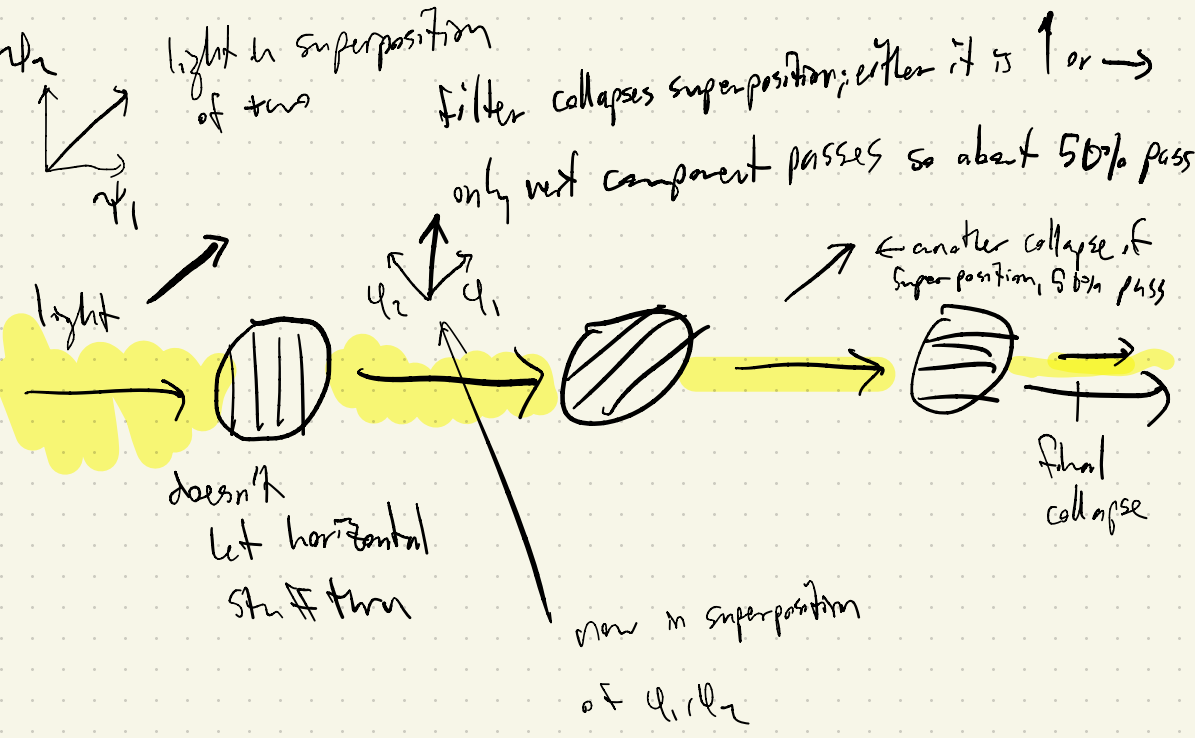 ψ2
light in superposition
of two
ψ1
filter collapses superposition; either it is ↑ or →
only vert component passes so about 50% pass
light
φ2 φ1
← another collapse of
superposition, 50% pass
doesn't
let horizontal
stuff thru
final
collapse
now in superposition
of φ1, φ2